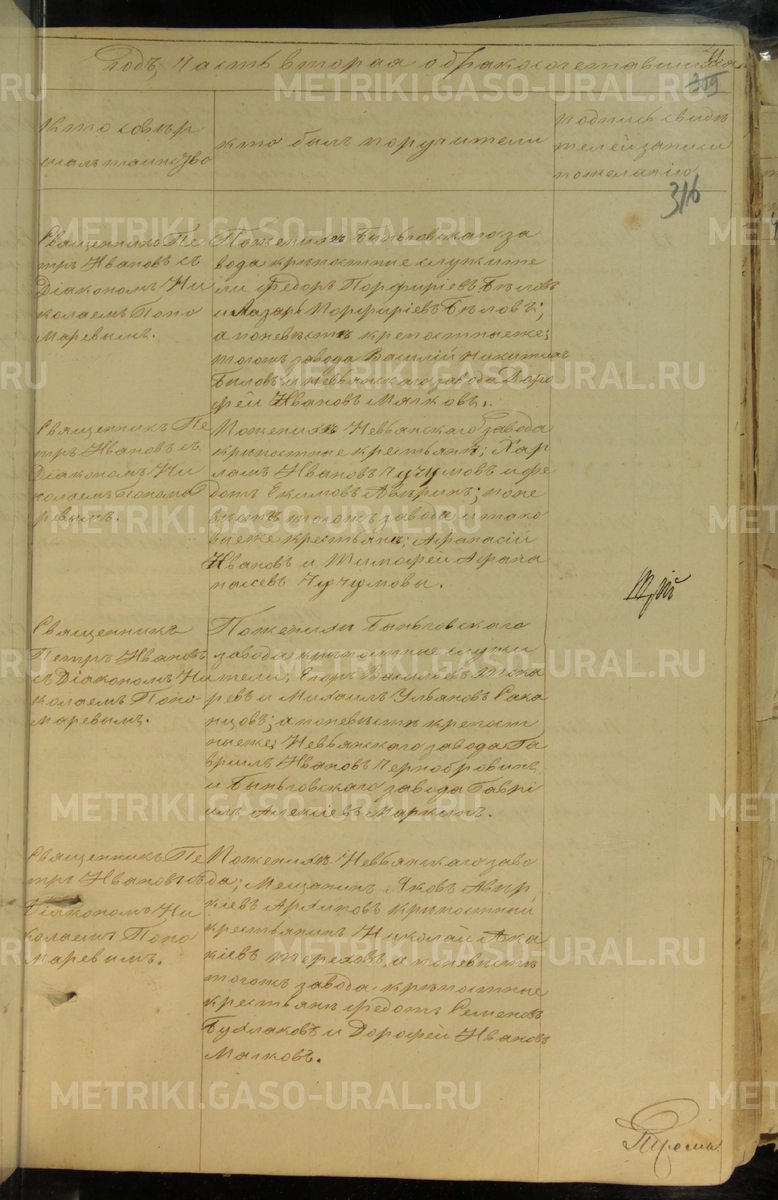 Годъ, Часть вторая о бракосочетавшихся
305
316
Кто совер
шалъ таинство
кто былъ поручители
подпись свидѣ
телей записи
по желанію
Священникъ Пе
тръ Ивановъ съ
Діакономъ Ни
колаемъ Поно
маревымъ.
По женихѣ Быньговскаго за
вода крѣпостные служите
ли Федоръ Порфиріевъ Бѣловъ
и Лазарь Порфиріевъ Бѣловъ;
а по невѣстѣ крепостные же;
тогожъ завода Василій Никитинъ
Бѣловъ и Невьянскаго завода Доро
фей Ивановъ Мягковъ.
Священникъ Пе
тръ Ивановъ съ
Діакономъ Ни
колаемъ Понома
ревымъ.
По женихѣ Невьянскаго завода
крѣпостные крестьяне; Хар
лам Ивановъ Чучумовъ и Фе
дотъ Екимовъ; по не
вѣстѣ тогожъ завода и тако
выеже крестьяне; Афанасій
Ивановъ и Тимофей Афана
насьевъ Чучумовы.
Священникъ
Петръ Ивановъ
съ Діакономъ Ни
колаемъ Поно
маревымъ.
По женихѣ Быньговскаго
завода крѣпостные служи
тели; Егоръ Васильевъ Тока
ревъ и Михаилъ Ульяновъ Сака
нцовъ; а по невѣстѣ крепост
ные же; Невьянскаго завода Га
врилъ Ивановъ Чернобровинъ
и Быньговскаго завода Гаврі
илъ Алексіевъ Маркинъ.
Священникъ Пе
тръ Ивановъ съ
Діакономъ Ни
колаемъ Поно
маревымъ.
По женихѣ Невьянскаго заво
да; Мещанинъ Яковъ Авер
кіевъ Архиповъ крѣпостный
крестьянинъ Николай Ака
кіевъ Тереховъ, а по невѣстѣ
тогожъ завода крѣпостные
крестьяне Федотъ Семеновъ
и Дорофей Ивановъ
Мягковъ.
METRIKI.GASO-URAL.RU